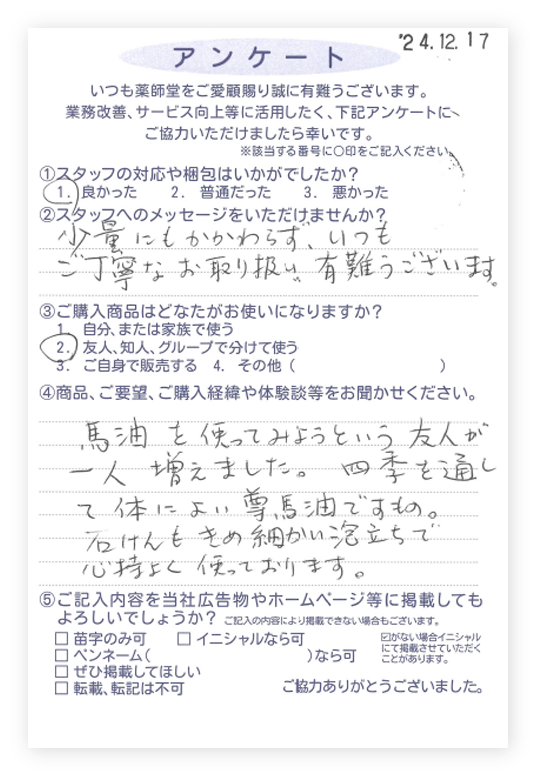 '24.12.17
アンケート
いつも薬師堂をご愛顧賜り誠に有難うございます。
業務改善、サービス向上等に活用したく、下記アンケートに
ご協力いただけましたら幸いです。
※該当する番号に〇印をご記入ください。
①スタッフの対応や梱包はいかがでしたか?
1. 良かった 2. 普通だった 3. 悪かった
②スタッフへのメッセージをいただけませんか?
少量にもかかわらず、いつも
ご丁寧なお取り扱い、有難うございます。
③ご購入商品はどなたがお使いになりますか?
1. 自分、または家族で使う
2. 友人、知人、グループで分けて使う
3. ご自身で販売する 4. その他( )
④商品、ご要望、ご購入経緯や体験談等をお聞かせください。
馬油を使ってみようという友人が
一人 増えました。 四季を通し
て体によい尊馬油ですもの。
石けんもきめ細かい泡立ちで
心持よく使っております。
⑤ご記入内容を当社広告物やホームページ等に掲載しても
よろしいでしょうか? ご記入の内容により掲載できない場合もございます。
□ 苗字のみ可 □ イニシャルなら可
□ ペンネーム( )なら可
□ ぜひ掲載してほしい
□ 転載、転記は不可
☑がない場合イニシャル
にて掲載させていただく
ことがあります。
ご協力ありがとうございました。